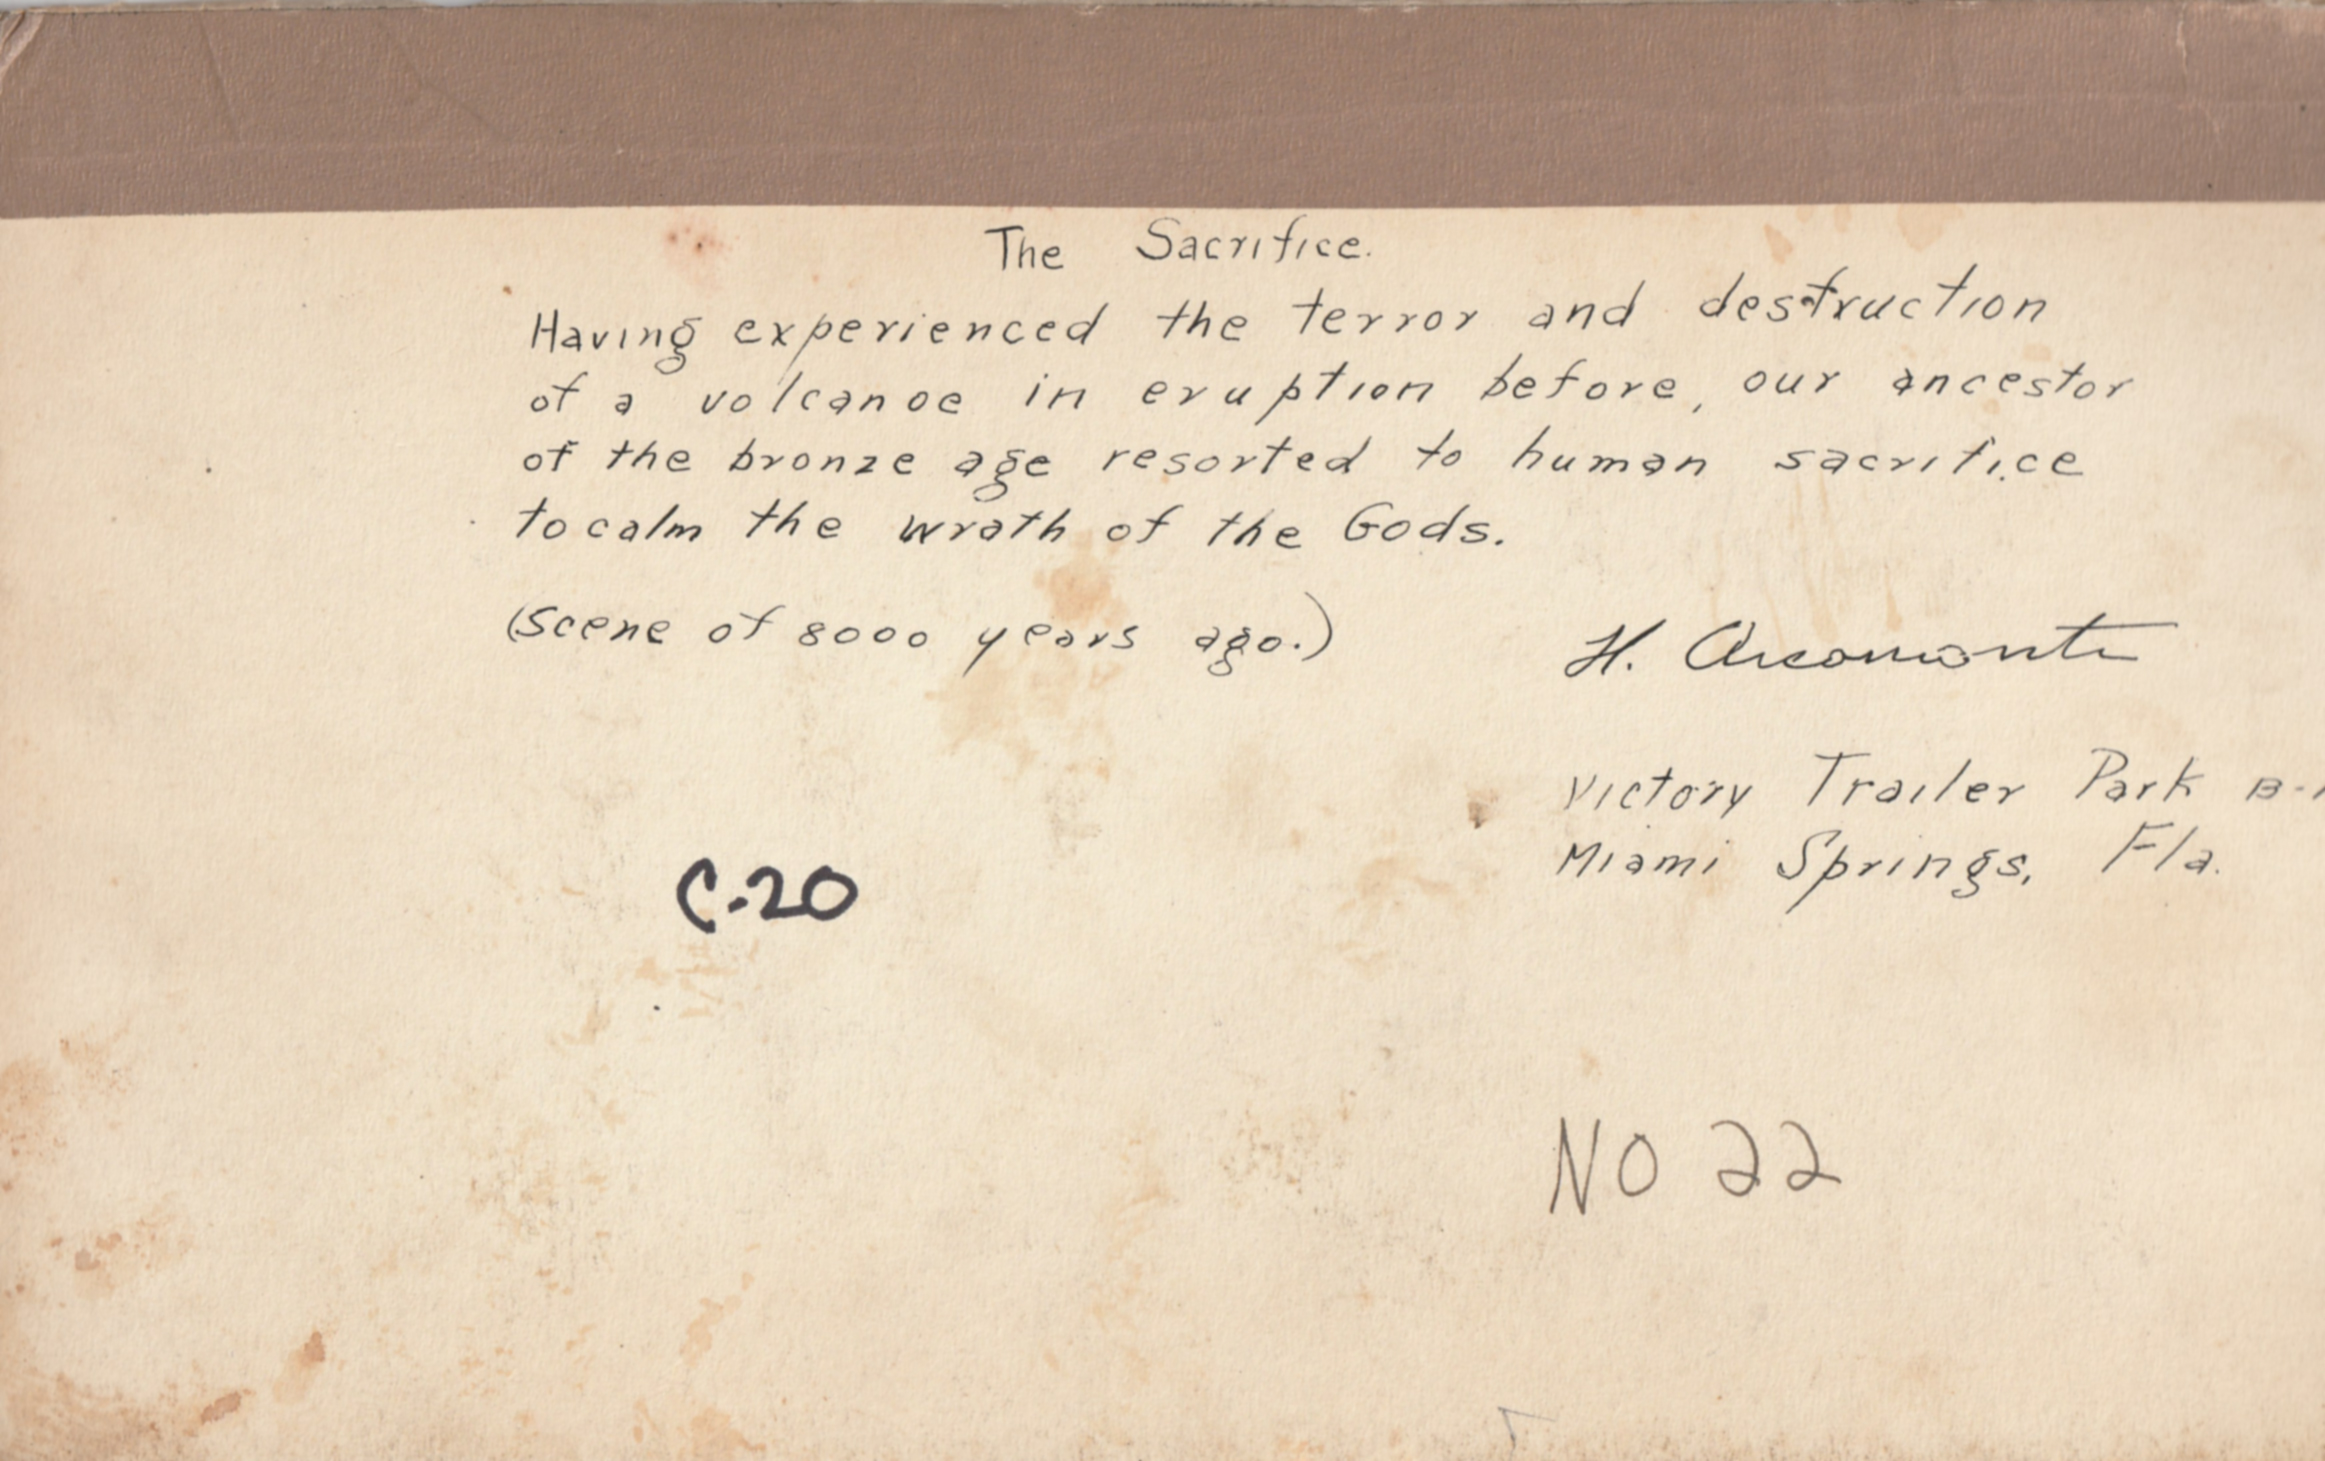 The Sacrifice.
Having experienced the terror and destruction
of a volcanoe in eruption before, our ancestor
of the bronze age resorted to human sacrifice
to calm the wrath of the Gods.
(Scene of 8000 years ago.)
H.
Victory Trailer Park B-
Miami Springs, Fla.
C-20
NO 22